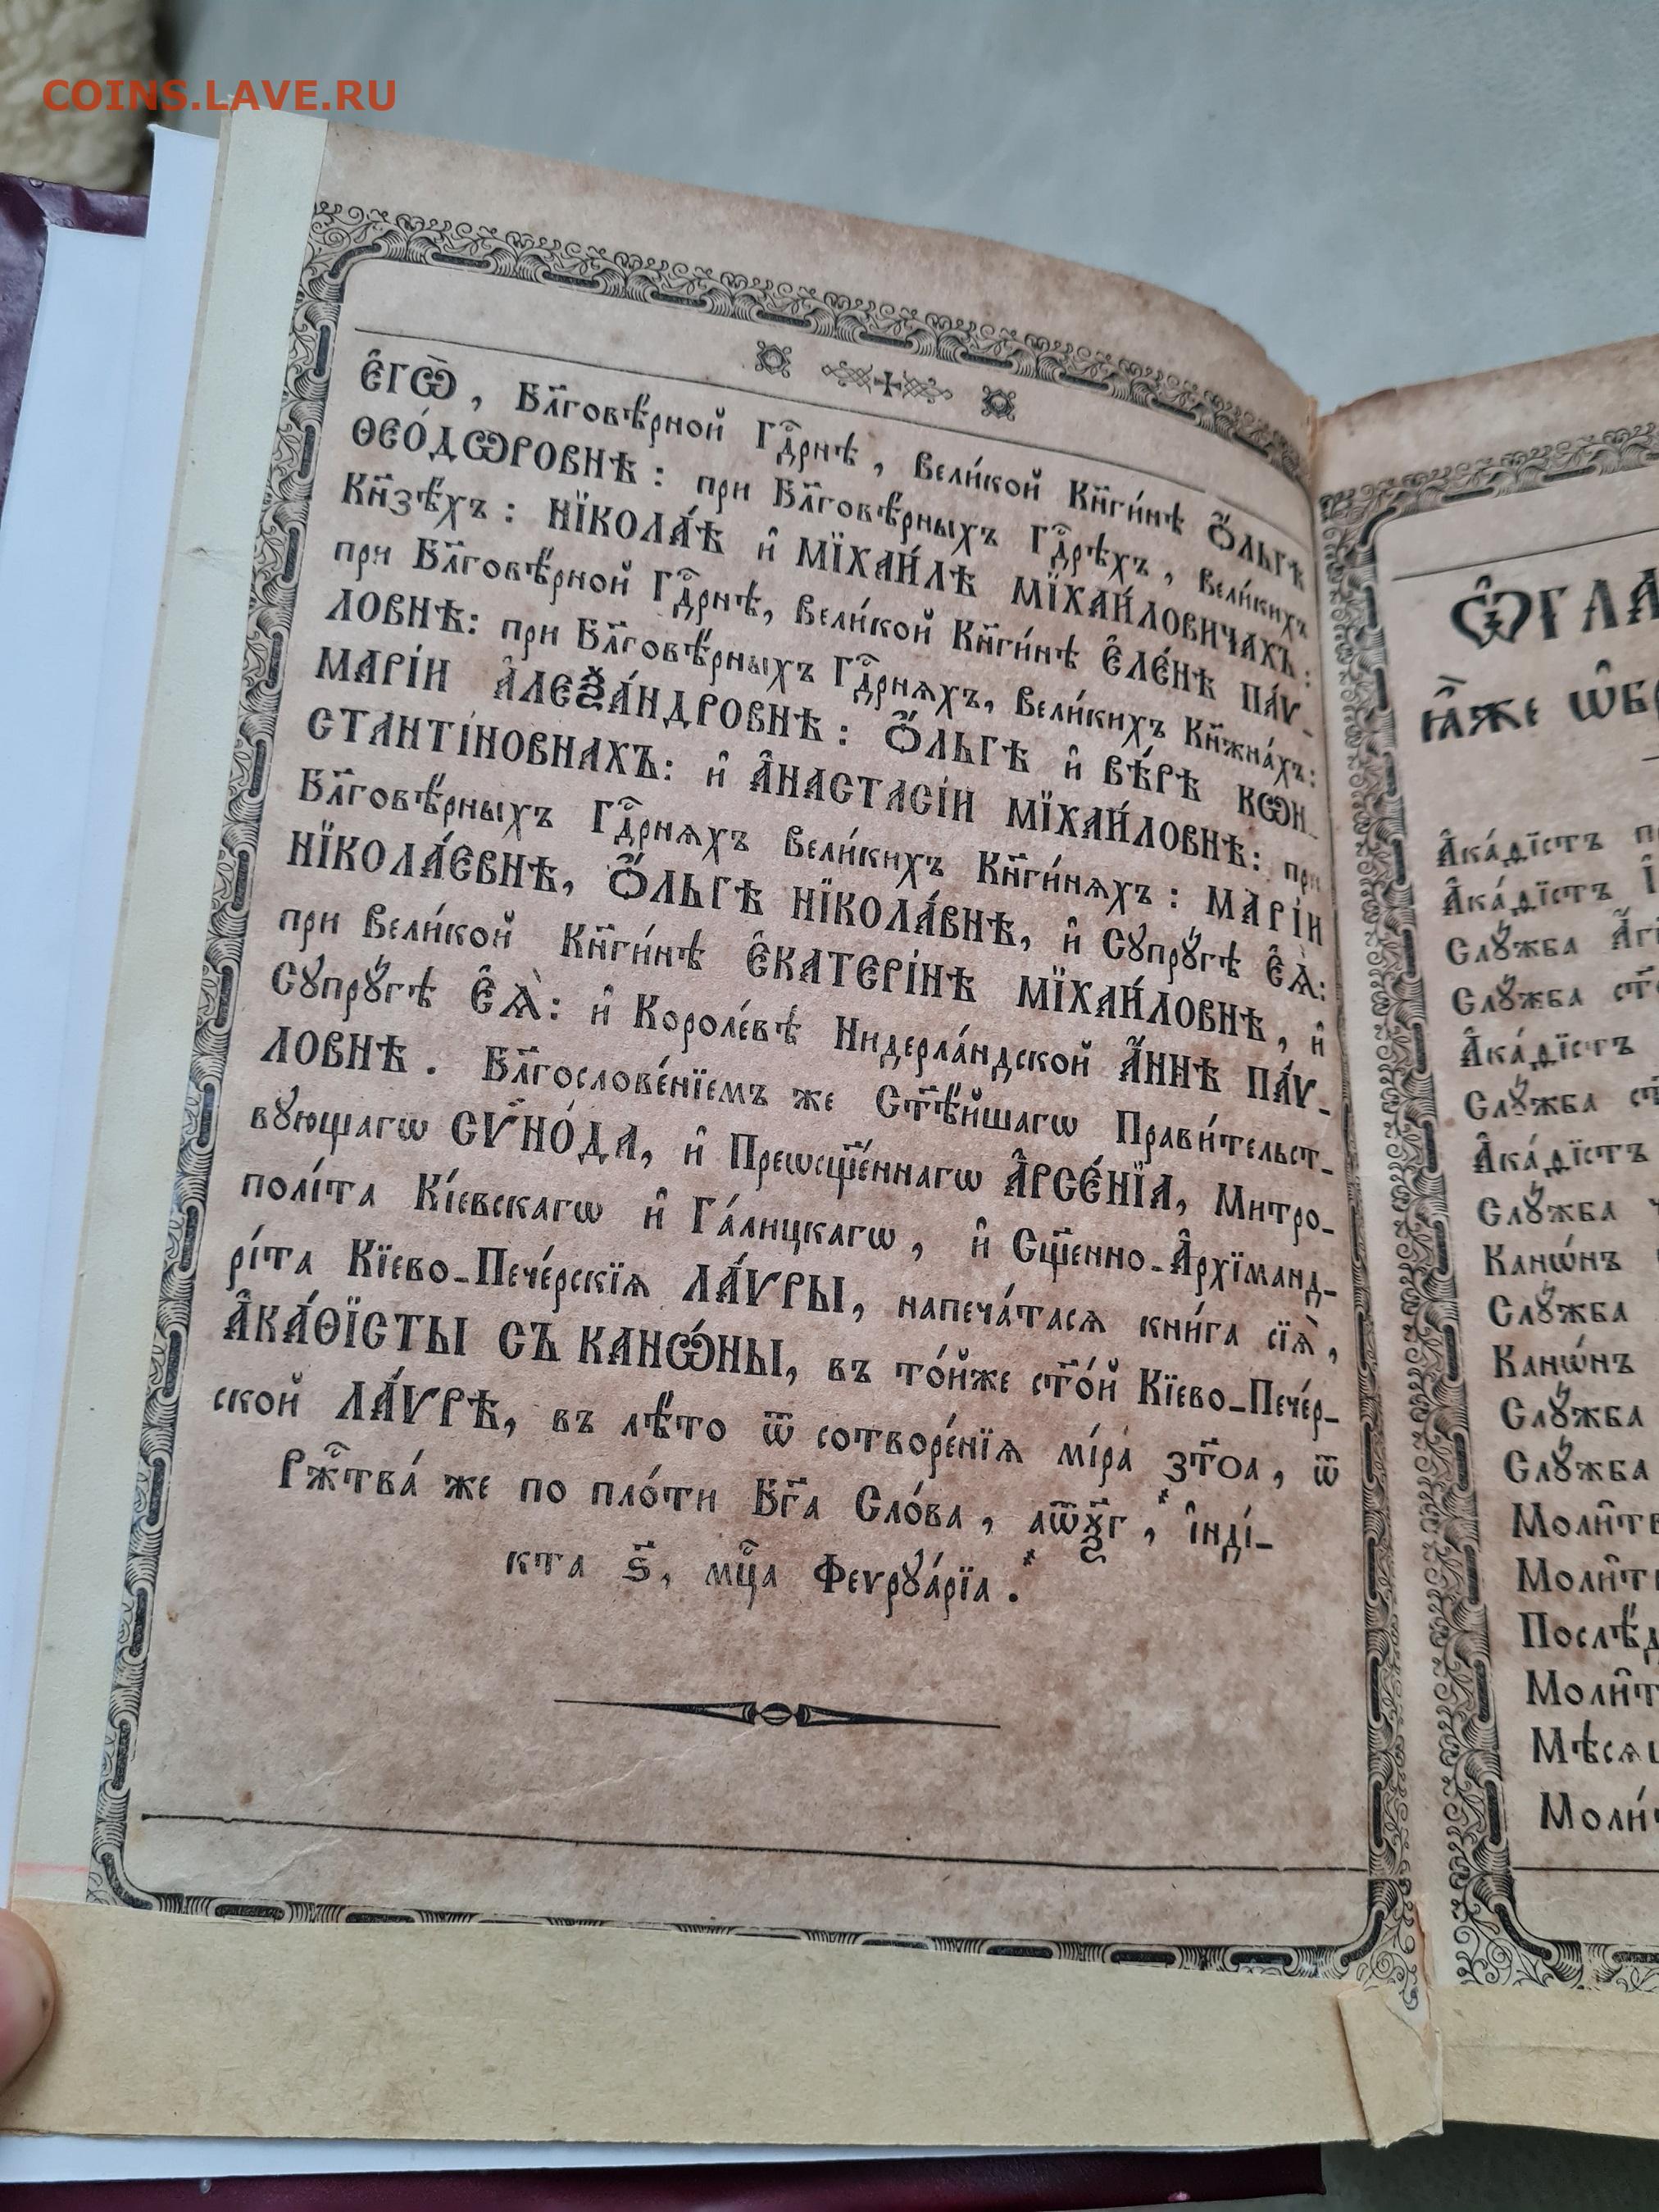 COINS.LAVE.RU
є҆гѡ̀, Бл҃говѣ́рной Гдⷭ҇рнѣ, Вели́кой Кн҃ги́нѣ Ѻ҆́ЛЬГѢ
ѲЕО́ДѠРОВНѢ: при Бл҃говѣ́рныхъ Гдⷭ҇рѣхъ, вели́кихъ
Кн҃зѣхъ: НЇКОЛА́Ѣ и҆ МЇХАИ́ЛѢ МЇХАИ́ЛОВИЧАХЪ:
при Бл҃говѣ́рной Гдⷭ҇рнѣ, Вели́кой Кн҃ги́нѣ Є҆ЛЕ́НѢ ПА́Ѵ-
ЛОВНѢ: при Бл҃говѣ́рныхъ Гдⷭ҇рнѧхъ, Вели́кихъ Кн҃жна́хъ:
МАРІ́И А҆ЛЕѮА́НДРОВНѢ: Ѻ҆́ЛЬГѢ и҆ ВѢ́РѢ КѠН-
СТАНТІ́НОВНАХЪ: и҆ А҆НАСТАСІ́И МЇХАИ́ЛОВНѢ: при
Бл҃говѣ́рныхъ Гдⷭ҇рнѧхъ Вели́кихъ Кн҃ги́нѧхъ: МАРІ́И
НЇКОЛА́ЄВНѢ, Ѻ҆́ЛЬГѢ НЇКОЛА́ВНѢ, и҆ Сꙋпрꙋ́гѣ Є҆Ѧ̀:
при Вели́кой Кн҃ги́нѣ Є҆КАТЕРІ́НѢ МЇХАИ́ЛОВНѢ, и҆
Сꙋпрꙋ́гѣ Є҆Ѧ̀: и҆ Короле́вѣ Нидерла́ндской А҆́ННѢ ПА́Ѵ-
ЛОВНѢ. Бл҃гослове́нїемъ же Ст҃ѣ́йшагѡ Прави́тельст-
вꙋющагѡ СѴНО́ДА, и҆ Преѡсщ҃е́ннагѡ А҆РСЕ́НЇА, Митро-
полі́та Кі́евскагѡ и҆ Га́лицкагѡ, и҆ Сщ҃енно-А҆рхїманд-
рі́та Кїево-Пече́рскїѧ ЛА́ѴРЫ, напеча́тасѧ кни́га сїѧ̀,
А҆КА́ѲЇСТЫ СЪ КАНѠ́НЫ, въ то́йже ст҃о́й Кїево-Пече́р-
ской ЛА́ѴРѢ, въ лѣ́то ѿ сотворе́нїѧ мі́ра зт҃оа, ѿ
Ржⷭ҇тва́ же по пло́ти Бг҃а Сло́ва, аѿѯг, і҆нді́-
кта ѕ҃, мцⷭ҇а Феѵрꙋа́рїа.
Ѡ҆ГЛА
ꙗ҆̀же ѡ҆бр
А҆ка́дїстъ п
А҆ка́дїстъ І҆
Слꙋ́жба А҆́гг
Слꙋ́жба ст҃
А҆ка́дїстъ
Слꙋ́жба ст҃
А҆ка́дїстъ
Слꙋ́жба
Канѡ́нъ
Слꙋ́жба
Канѡ́нъ
Слꙋ́жба
Слꙋ́жба
Моли́тв
Моли́т
Послѣ́д
Моли́т
Мѣсѧц
Моли́т